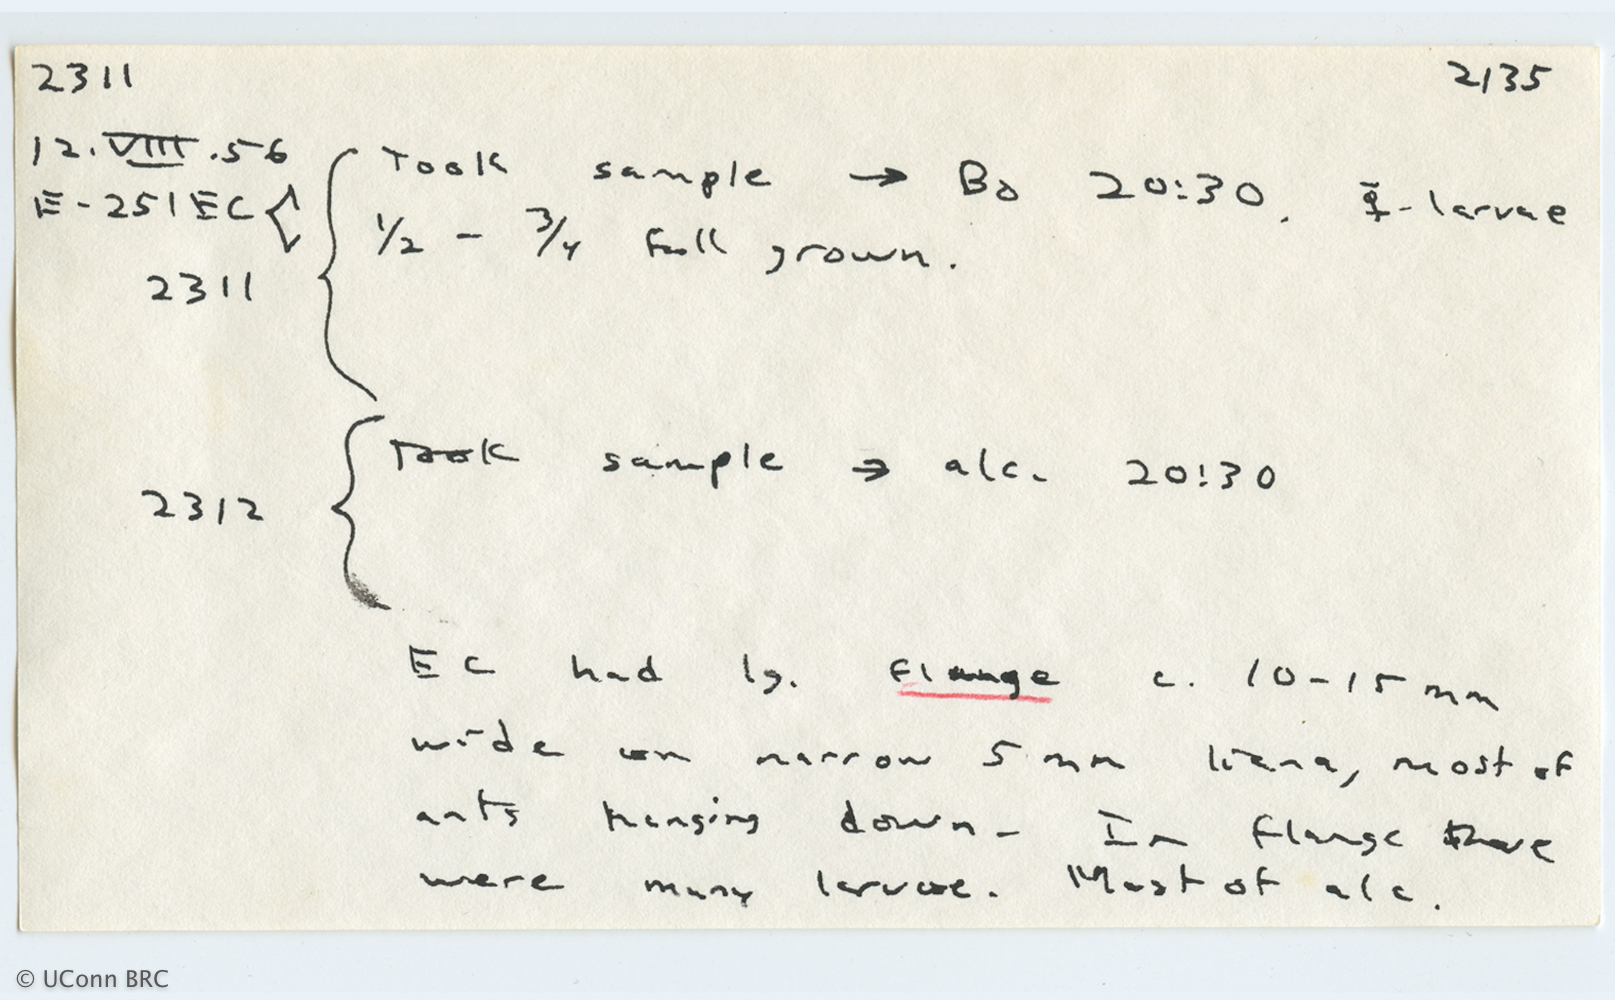 2311 2135
12.VIII.56
E-251 EC { Took sample → Bo 20:30. ☿-larvae
1/2 - 3/4 full grown.
2311
Took sample → alc. 20:30
2312
EC had lg. flange c. 10-15 mm
wide on narrow 5 mm liana, most of
ants hanging down - In flange there
were many larvae. Most of alc.
© UConn BRC